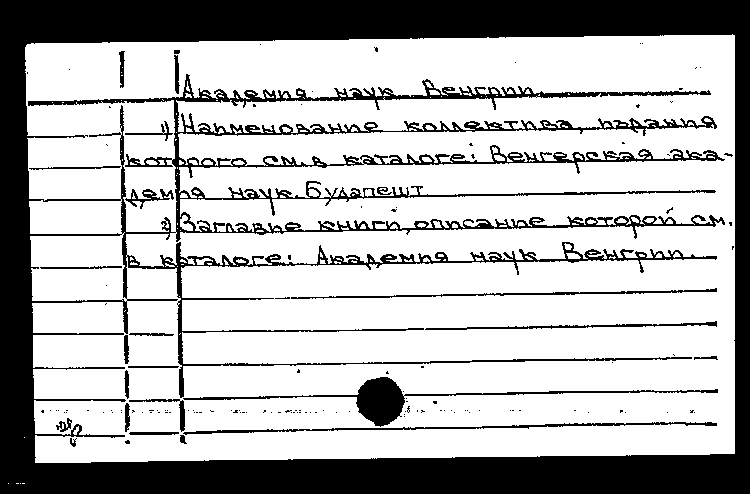 Академия наук Венгрии
1) Наименование коллектива, издания
которого см. в каталоге: Венгерская ака-
демия наук. Будапешт
2) Заглавие книги, описание которой см.
в каталоге: Академия наук Венгрии.